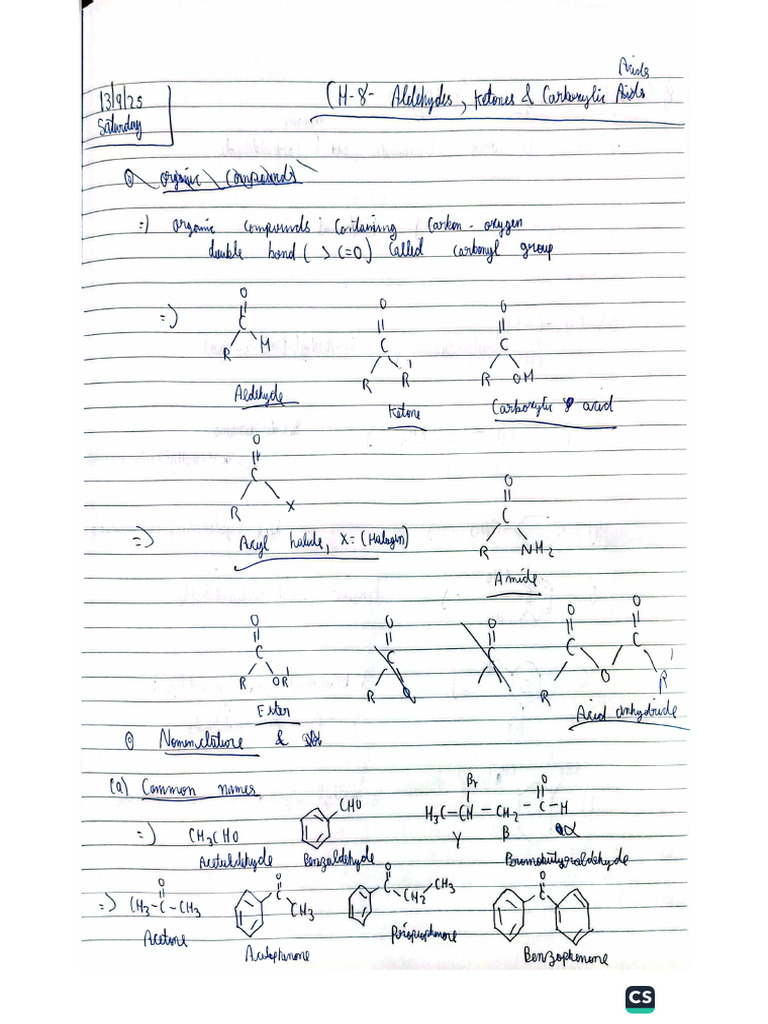 Acids
13/9/25
Saturday
CH-8- Aldehydes, Ketones & Carboxylic Acids
Organic Compounds
=) Organic compounds containing carbon-oxygen
double bond ( > C=O) called carbonyl group
=)
O
C
R H
Aldehyde
O
C
R R'
Ketone
O
C
R OH
Carboxylic acid
O
C
R X
=) Acyl halide, X= (Halogen)
O
C
R NH2
Amide
O
C
R OR'
Ester
O
C
R
O
C
O O
C C
R O R'
Acid anhydride
Nomenclature &
(a) Common names
=) CH3CHO
Acetaldehyde
CHO
Benzaldehyde
Br O
H3C-CH-CH2-C-H
γ β α
Bromobutyraldehyde
O
=) CH3-C-CH3
Acetone
O
C
CH3
Acetophenone
O
C CH2 CH3
Propiophenone
O
C
Benzophenone
CS